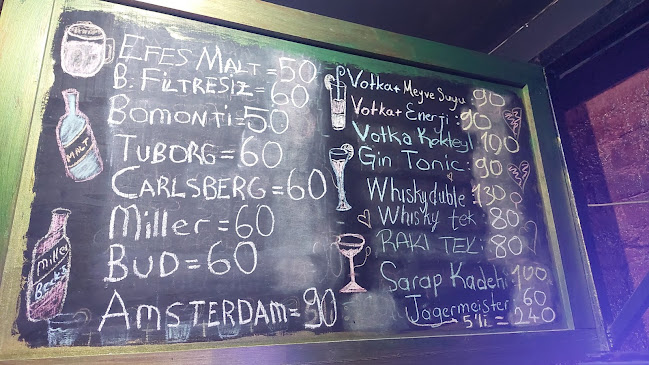 EFES MALT = 50
B. FİLTRESİZ = 60
BOMONTİ = 50
TUBORG = 60
CARLSBERG = 60
Miller = 60
BUD = 60
AMSTERDAM = 90
MALT
Miller
Becks
Votka + Meyve Suyu : 90
Votka + Enerji : 90
Votka Kokteyl 100
Gin Tonic : 90
Whisky duble : 130
Whisky tek : 80
RAKI TEK : 80
Şarap Kadehi 100
Jägermeister 60
5'li = 240